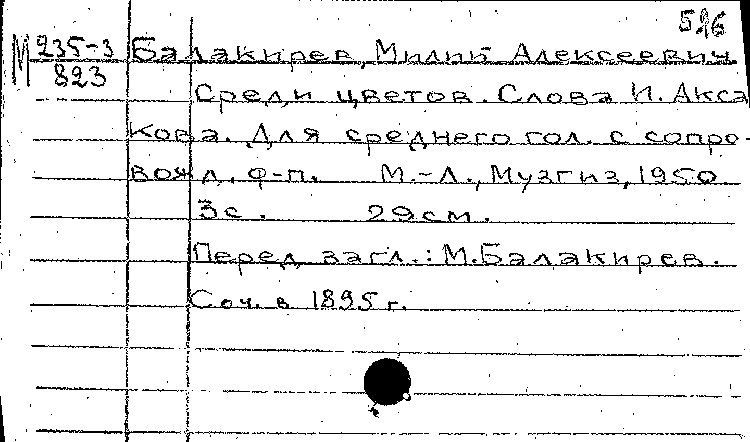 526
М 235-3 Балакирев, Милий Алексеевич.
823
Среди цветов. Слова И. Акса
кова. Для среднего гол. с сопро-
вожд. ф-п. М.-Л., Музгиз, 1950
3с. 29см.
Перед загл.: М.Балакирев.
Соч. в 1895 г.